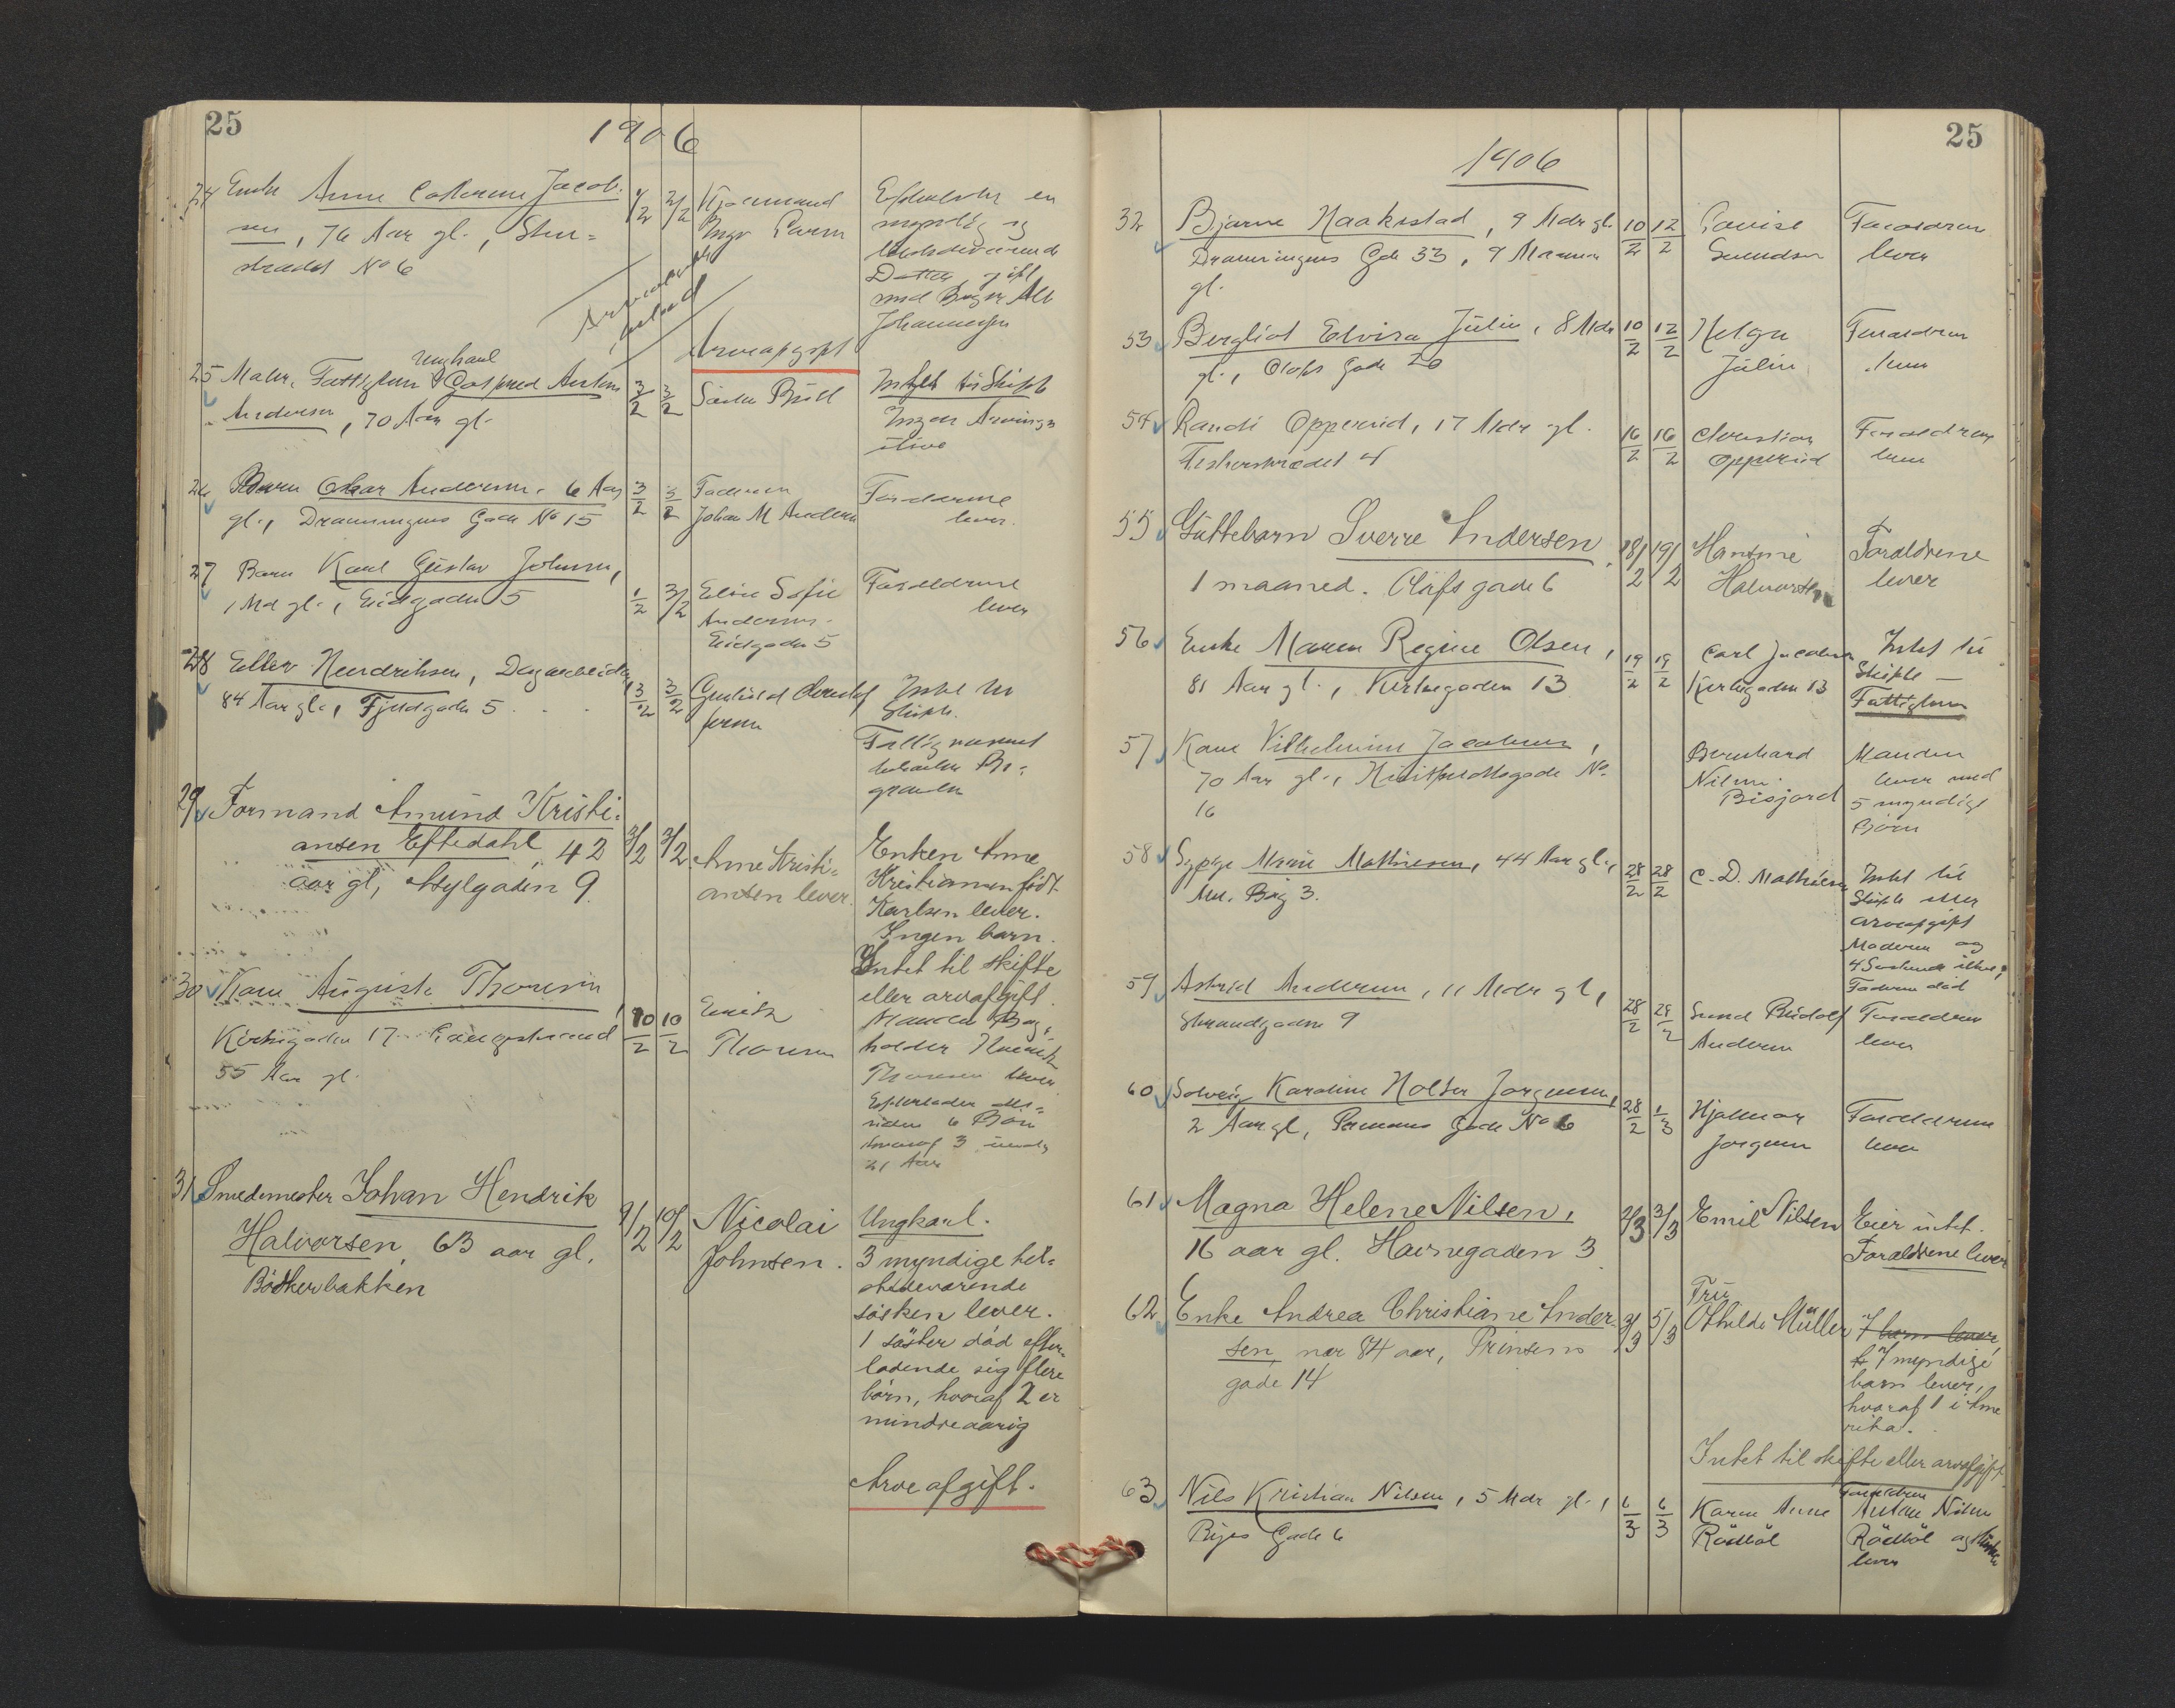 25
1906
24 Enke Anne Cathrine Jacob-
sen, 76 Aar gl., Sten=
strædet No 6
1/2 2/2
Efterlader en
myndig og
Datter, gift
med Bager Alb
Johannesen
Arveafgift
Ungkarl
25 Maler, Fattiglem Gotfred Anton
Andersen, 70 Aar gl.
3/2 3/2
Intet til Skifte
Ingen Arvinger
26 Barn Oskar Andersen, 6 Aar
gl., Dronningens Gade No 15
3/2 3/2
Faderen
Johan M Andersen
Forældrene
lever.
27 Barn Karl Gustav Johnsen,
1 Md gl., Eidgaden 5
1/2 3/2
Elise Sofie
Andersen.
Eidgaden 5
Forældrene
lever
28 Ellev Hendriksen, Dagarbeider,
84 Aar gl., Fjeldgaden 5
3/2 3/2
Intet til
Skifte.
29 Formand Amund Kristi=
ansen Eftedahl, 42
aar gl, Asylgaden 9.
3/2 3/2
Anne Kristi=
ansen lever.
Enken Anne
Kristiansen født
Karlsen lever.
Ingen barn.
Intet til skifte
eller arvafgift.
30 Kone Auguste Thoresen,
Kirkegaden 17 Langestrand
55 Aar gl.
10/2 10/2
Thoresen
Manden Bog=
holder
Thoresen lever
Efterlader
6 Børn
hvoraf 3 under
21 Aar
31 Smedemester Johan Hendrik
Halvorsen, 63 aar gl,
Bødkerbakken
9/2 10/2
Nicolai
Johnsen.
Ungkarl.
3 myndige hel=
stedeværende
søsken lever.
1 søster død efter-
ladende sig flere
børn, hvoraf 2 er
mindreaarig
Arveafgift.
25
1906
32 Bjarne Haakestad, 9 Mdr gl.
Dronningens Gde 33, 9 Maaneder
gl.
10/2 12/2
Lovise
Svendsen
Forældrene
lever
53 Bergliot Elvira Julin, 8 Mdr
gl., Olafs Gade 20
10/2 12/2
Helga
Julin
Forældrene
lever
54 Randi Opperud, 17 Mdr gl.
Fiskerstrædet 4
16/2 16/2
Christian
Opperud
Forældrene
lever
55 Guttebarn Sverre Andersen,
1 maaned. Olafs gade 6
18/2 19/2
Hansine
Halvorsen
Forældrene
lever
56 Enke Maren Regine Olsen,
81 Aar gl., Kirkegaden 13
19/2 19/2
Carl Jacobsen
Kirkegaden 13
Intet til
Skifte —
Fattiglem
57 Kone Vilhelmine Jacobsen,
70 Aar gl., Hvitfeldtsgade No
16
Bernhard
Nilsen.
Bisjord
Manden
lever med
5 myndige
Børn
58 Sypige Marie Mathiesen, 44 Aar gl.,
28/2 28/2
C. D. Mathiesen
Intet til
Skifte eller
arveafgift
Moderen og
4 Søskende
Faderen død
59 Astrid Andersen, 11 Mdr gl,
Strandgaden 9
28/2 28/2
Rudolf
Andersen
Forældrene
lever
60 Solveig Karoline Holter Jørgensen,
2 Aar gl, Gade No 6
28/2 1/3
Hjalmar
Jørgensen
Forældrene
lever
61 Magna Helene Nilsen,
16 aar gl. Havnegaden 3
2/3 3/3
Emil Nilsen
Eier intet.
Forældrene lever
62 Enke Andrea Christiane Ander-
sen, nær 84 aar, Prinsens
gade 14
3/3 5/3
Othilde Müller
7 barn lever,
7 myndige
barn lever,
hvoraf 1 i Ame
rika.
Intet til skifte eller arvafgift
63 Nils Kristian Nilsen, 5 Mdr gl.,
Gade 6
6/3 6/3
Karen Anne
Rødbøl
Forældrene
Anton Nilsen
Rødbøl og
lever